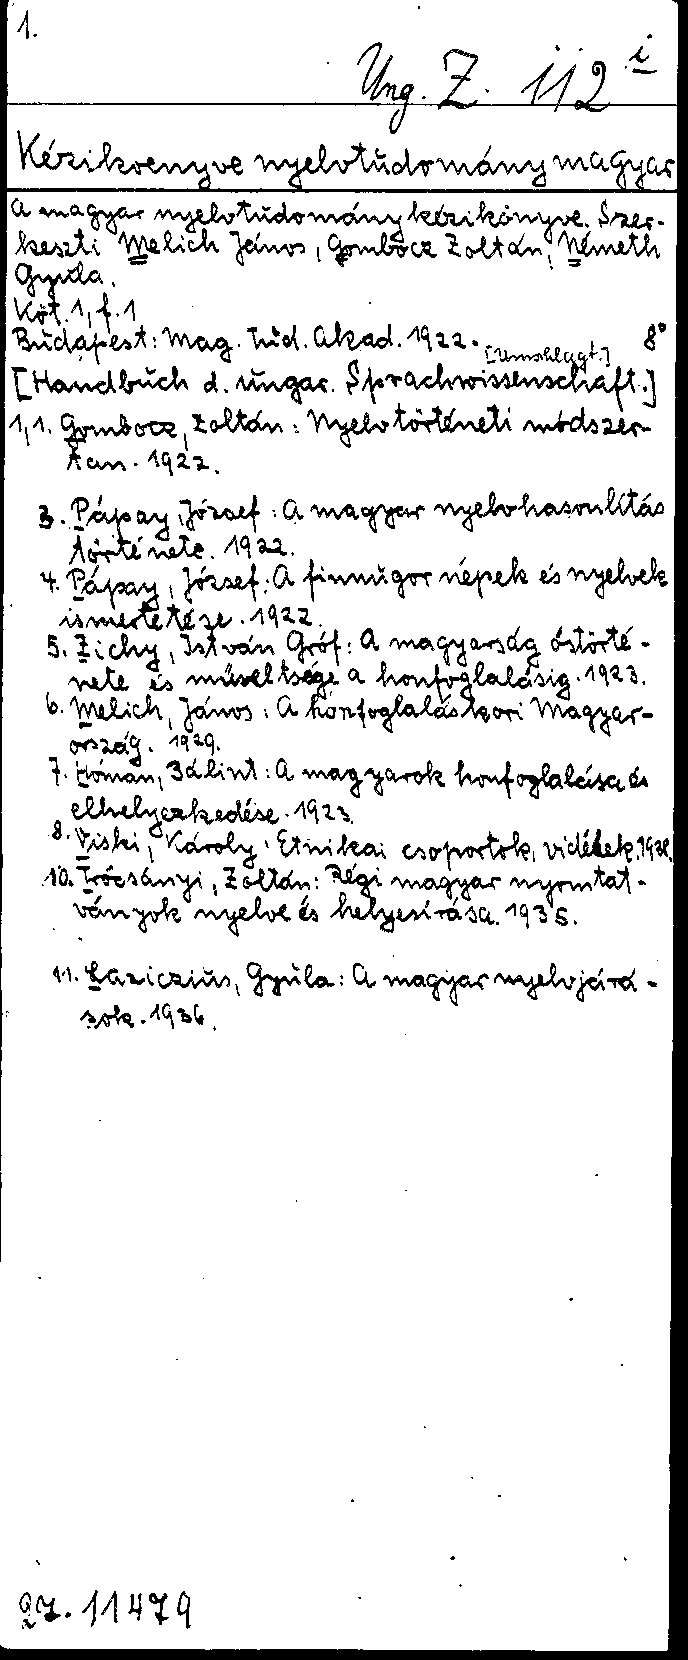 1.
Ung. Z. 112 i
Kézikoenyve nyelvtudomány magyar
A magyar nyelvtudomány kézikönyve. Szer-
keszti Melich János, Gombocz Zoltán, Németh
Gyula.
Köt. 1, f. 1
Budapest: Mag. Tud. Akad. 1922. 8°
[Umschlagt.]
[Handbuch d. ungar. Sprachwissenschaft.]
1,1. Gombocz, Zoltán: Nyelvtörténeti módszer-
tan. 1922.
3. Pápay, József: A magyar nyelvhasonlítás
története. 1922.
4. Pápay, József: A finnugor népek és nyelvek
ismertetése. 1922.
5. Zichy, István Gróf: A magyarság östörté-
nete és müveltsége a honfoglalásig. 1923.
6. Melich, János: A honfoglaláskori Magyar-
ország. 1929.
7. Hóman, Bálint: A magyarok honfoglalása és
elhelyezkedése. 1923.
8. Viski, Károly: Etnikai csoportok, vidékek. 1938.
10. Trócsányi, Zoltán: Régi magyar nyomtat-
ványok nyelve és helyesírása. 1935.
11. Laziczius, Gyula: A magyar nyelvjárá-
sok. 1936.
27. 11479